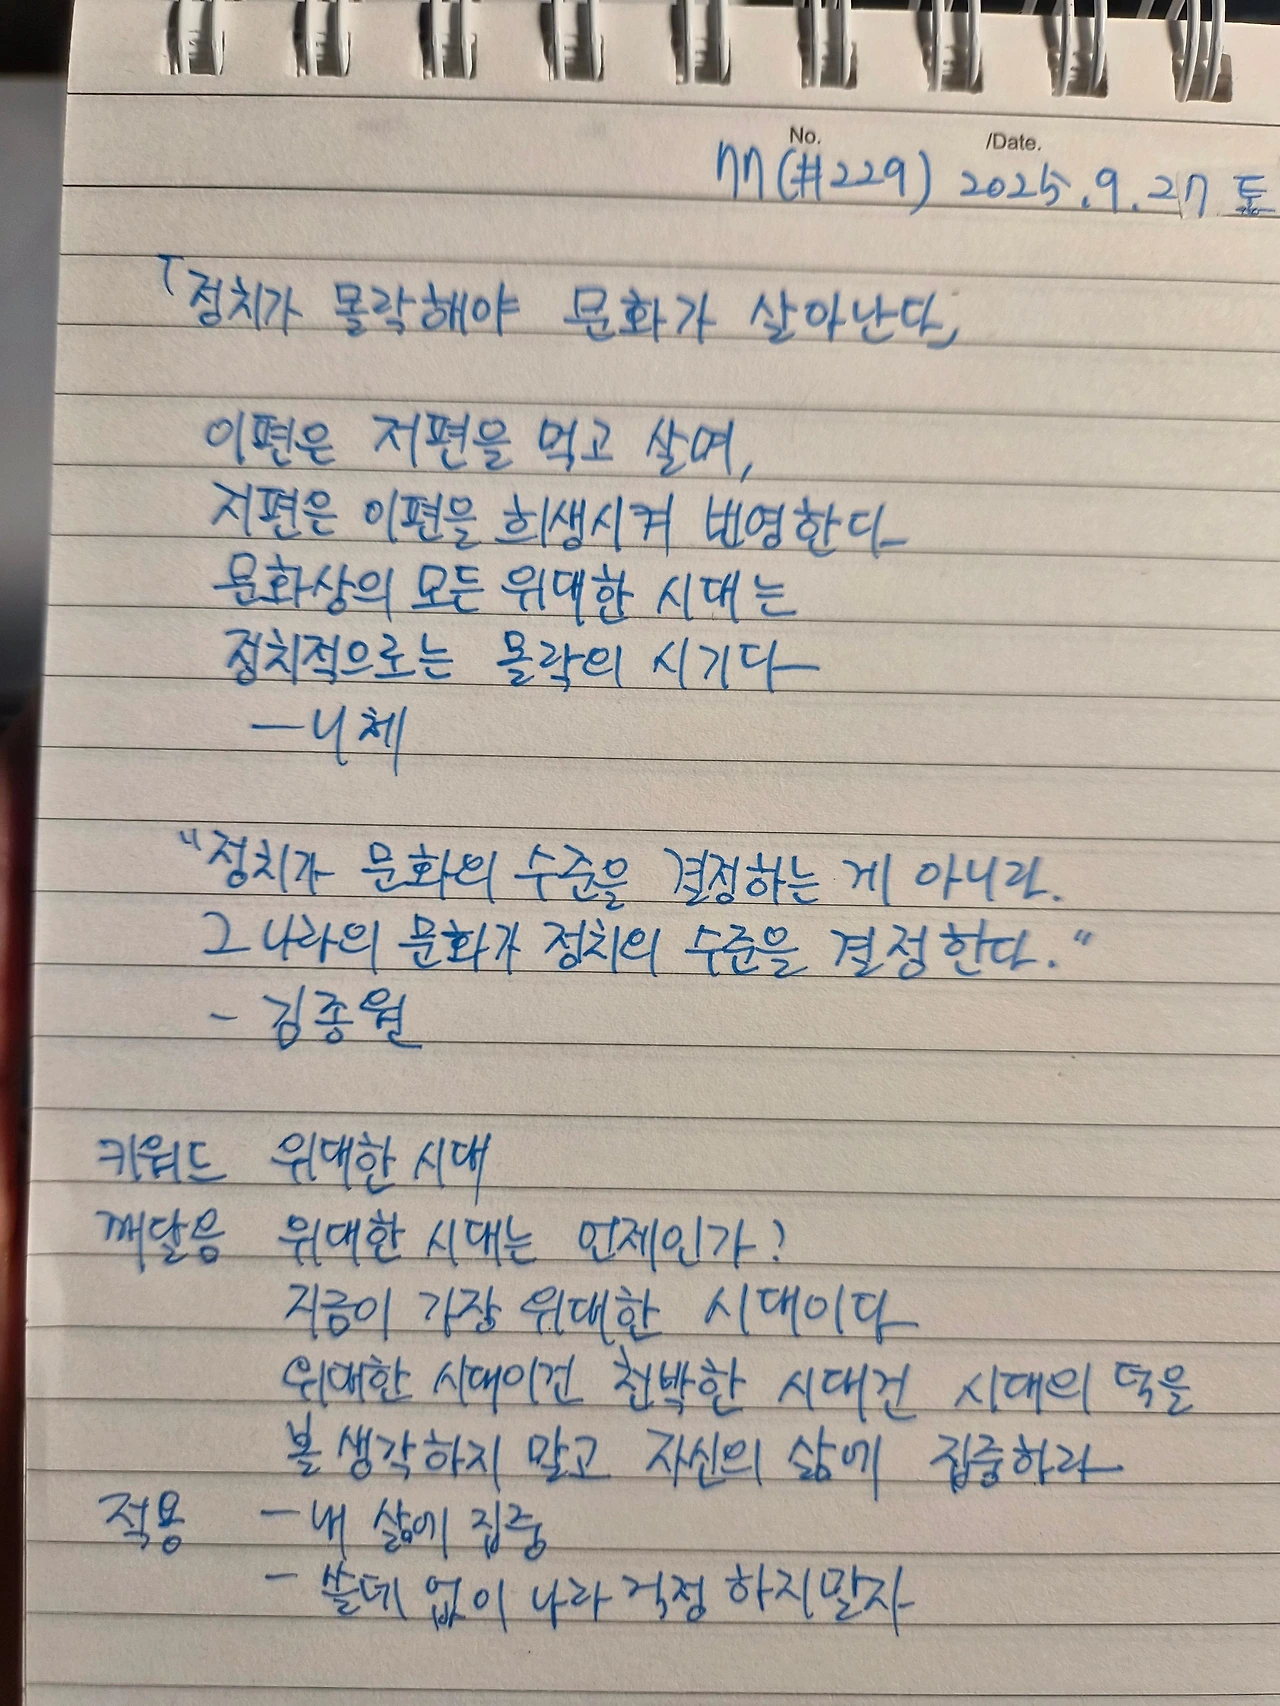 No. /Date.
77(#229) 2025.9.27 토
「정치가 몰락해야 문화가 살아난다」
이편은 저편을 먹고 살며,
저편은 이편을 희생시켜 번영한다
문화상의 모든 위대한 시대는
정치적으로는 몰락의 시기다
—니체
"정치가 문화의 수준을 결정하는 게 아니라.
그 나라의 문화가 정치의 수준을 결정한다."
- 김종원
키워드 위대한 시대
깨달음 위대한 시대는 언제인가?
지금이 가장 위대한 시대이다
위대한 시대이건 천박한 시대건 시대의 덕을
볼 생각하지 말고 자신의 삶에 집중하라
적용 —내 삶에 집중
- 쓸데 없이 나라 걱정 하지말자